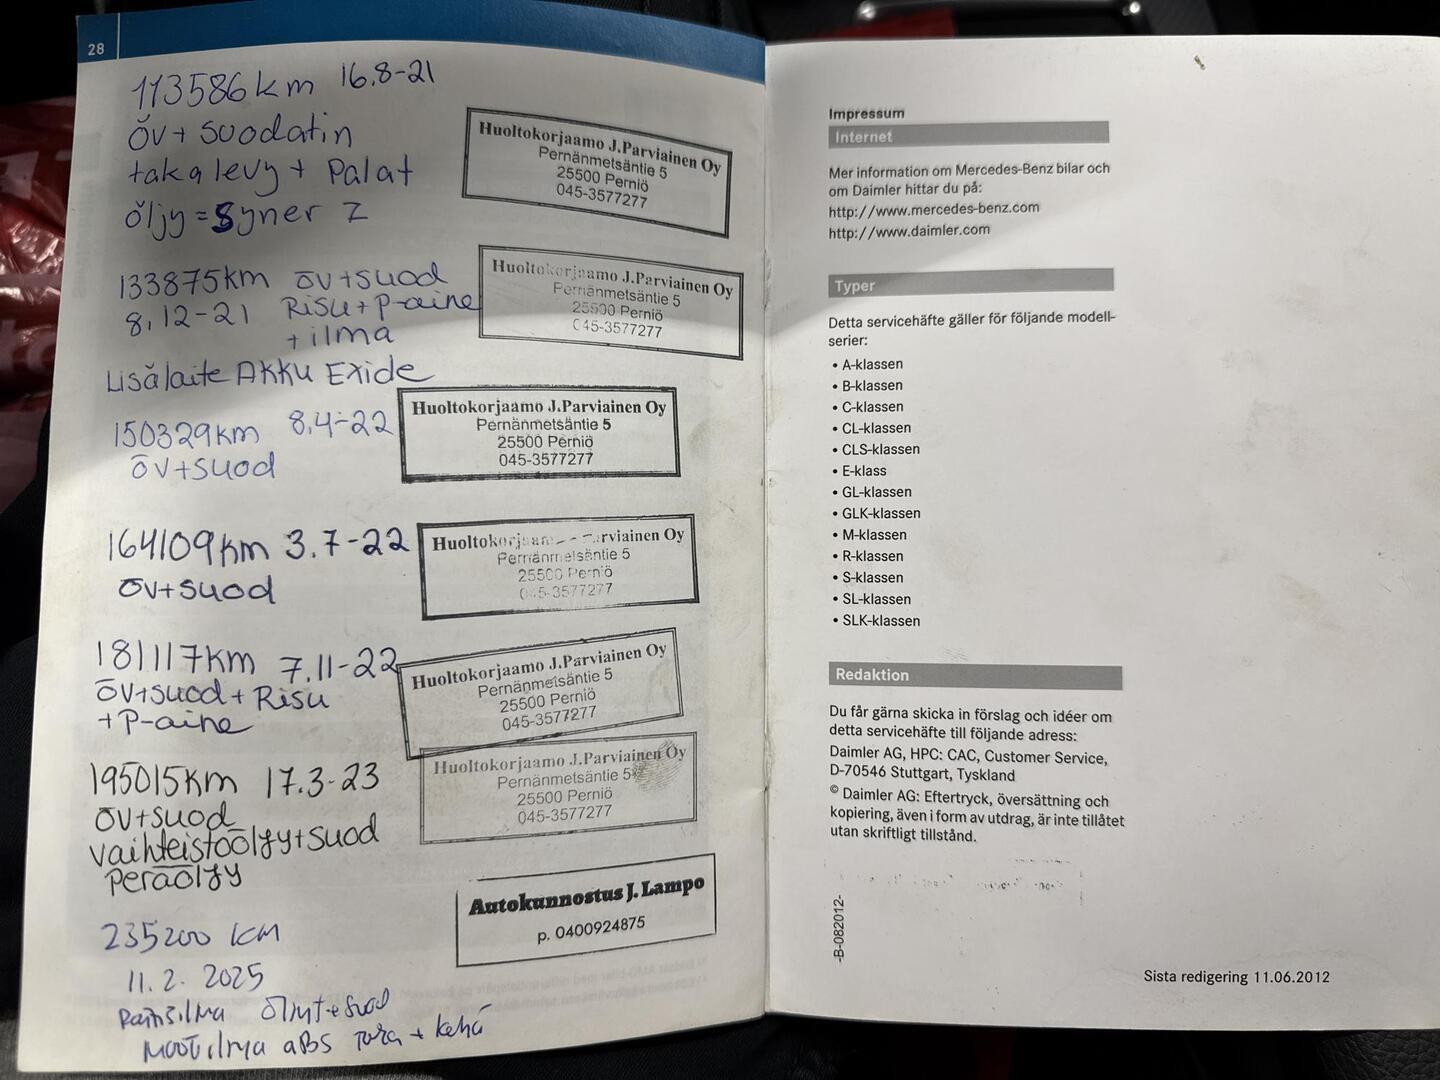 28
113586km 16.8-21
öv+ suodatin
takalevy + Palat
öljy = Syner Z
Huoltokorjaamo J.Parviainen Oy
Pernänmetsäntie 5
25500 Perniö
045-3577277
133875km öv+suod
8.12-21 Risu+p-aine
+ilma
Lisälaite Akku Exide
Huoltokorjaamo J.Parviainen Oy
Pernänmetsäntie 5
25500 Perniö
045-3577277
150329km 8.4-22
öv+suod
Huoltokorjaamo J.Parviainen Oy
Pernänmetsäntie 5
25500 Perniö
045-3577277
164109km 3.7-22
öv+suod
Huoltokorjaamo J.Parviainen Oy
Pernänmetsäntie 5
25500 Perniö
045-3577277
181117km 7.11-22
öv+suod + Risu
+ P-aine
Huoltokorjaamo J.Parviainen Oy
Pernänmetsäntie 5
25500 Perniö
045-3577277
195015km 17.3-23
öv+suod
vaihteistoöljy+suod
peräöljy
Huoltokorjaamo J.Parviainen Oy
Pernänmetsäntie 5
25500 Perniö
045-3577277
235200 km
11.2. 2025
Autokunnostus J. Lampo
p. 0400924875
ABS + kehä
Impressum
Internet
Mer information om Mercedes-Benz bilar och
om Daimler hittar du på:
http://www.mercedes-benz.com
http://www.daimler.com
Typer
Detta servicehäfte gäller för följande modell-
serier:
• A-klassen
• B-klassen
• C-klassen
• CL-klassen
• CLS-klassen
• E-klass
• GL-klassen
• GLK-klassen
• M-klassen
• R-klassen
• S-klassen
• SL-klassen
• SLK-klassen
Redaktion
Du får gärna skicka in förslag och idéer om
detta servicehäfte till följande adress:
Daimler AG, HPC: CAC, Customer Service,
D-70546 Stuttgart, Tyskland
© Daimler AG: Eftertryck, översättning och
kopiering, även i form av utdrag, är inte tillåtet
utan skriftligt tillstånd.
-B-082012-
Sista redigering 11.06.2012